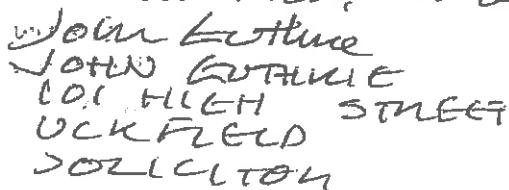 John Guthrie
JOHN GUTHRIE
101 HIGH STREET
UCKFIELD
SOLICITOR